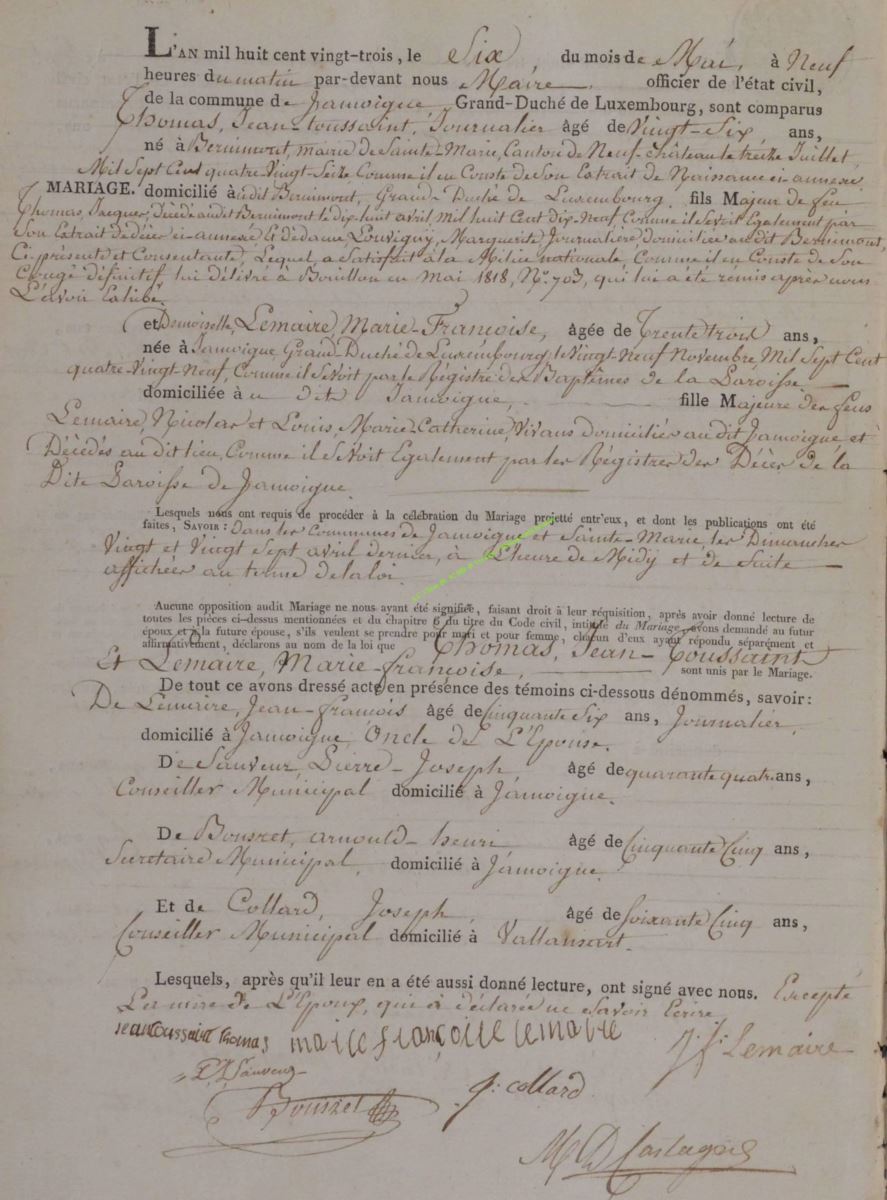 L'AN mil huit cent vingt-trois, le Six, du mois de Mai, à Neuf
heures du matin par-devant nous Maire officier de l'état civil,
de la commune de Jamoigne, Grand-Duché de Luxembourg, sont comparus
Thomas, Jean-toussaint, Journalier âgé de Vingt-Six ans,
né à Bernimont, mairie de Sainte-Marie, Canton de Neuf-château le treize Juillet
Mil Sept Cent quatre-Vingt-Seize Comme il en Conste de Son Extrait de Naissance ci-annexé
MARIAGE. domicilié à udit Bernimont, Grand-Duché de Luxembourg fils Majeur de feu
Thomas, Jacques, Décédé audit Bernimont le dix-huit avril, mil huit Cent Dix-Neuf, Comme il Se Voit Egalement par
Son Extrait de Décès ci-annexé Et de dame Louvigny, Marguerite Journalière, domiciliée au dit Bernimont,
Ci-présente et Consentante, Lequel a Satisfait à la Milice nationale, Comme il en Conste de Son
Congé définitif lui délivré à Bouillon en Mai 1818, N.° 703, qui lui a été remis après nous
L'avoir Exhibé.
et Demoiselle, Lemaire, Marie-Françoise, âgée de Trente trois ans,
née à Jamoigne Grand-Duché de Luxembourg, le Vingt-Neuf Novembre Mil Sept Cent
quatre-Vingt-Neuf, Comme il Se Voit par le Régistre des Baptêmes de la Paroisse
domiciliée à u dit Jamoigne, fille Majeure des feus
Lemaire, Nicolas et Louis, Marie-Catherine, Vivans domiciliés au dit Jamoigne et
Décédés au dit lieu, Comme il Se Voit Egalement par les Régistres des Décès de la
Dite Paroisse de Jamoigne.
Lesquels nous ont requis de procéder à la célébration du Mariage projetté entr'eux, et dont les publications ont été
faites, SAVOIR: Dans les Communes de Jamoigne et Sainte-Marie les Dimanches
Vingt et Vingt Sept avril dernier, à L'heure de Midy et de Suite
affichées au terme de la loi.
Aucune opposition audit Mariage ne nous ayant été signifiée, faisant droit à leur réquisition, après avoir donné lecture de
toutes les pièces ci-dessus mentionnées et du chapitre 6 du titre du Code civil, intitulé du Mariage, avons demandé au futur
époux et à la future épouse, s'ils veulent se prendre pour mari et pour femme, chacun d'eux ayant répondu séparément et
affirmativement, déclarons au nom de la loi que Thomas, Jean-Toussaint
Et Lemaire, Marie-françoise, sont unis par le Mariage.
De tout ce avons dressé acte en présence des témoins ci-dessous dénommés, savoir:
De Lemaire, Jean-françois âgé de Cinquante Six ans, Journalier,
domicilié à Jamoigne, Oncle de L'Epouse.
De Sauveur, Pierre-Joseph, âgé de quarante quatre ans,
Conseiller Municipal domicilié à Jamoigne.
De Bousret, arnould-henri âgé de Cinquante Cinq ans,
Secretaire Municipal, domicilié à Jamoigne.
Et de Collard, Joseph, âgé de Soixante Cinq ans,
Conseiller Municipal domicilié à Vallansart.
Lesquels, après qu'il leur en a été aussi donné lecture, ont signé avec nous. Excepté
La mère de L'Epoux, qui a déclarée ne Savoir Ecrire
jean toussaint thomas marie françoise lemaire J. f. Lemaire
P J Sauveur
Bousret j: collard